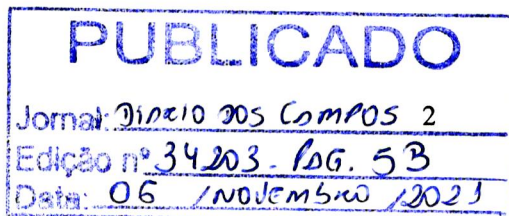 PUBLICADO
Jornal: DIARIO DOS CAMPOS 2
Edição nº 34203 - PAG. 5B
Data: 06 / NOVEMBRO / 2021